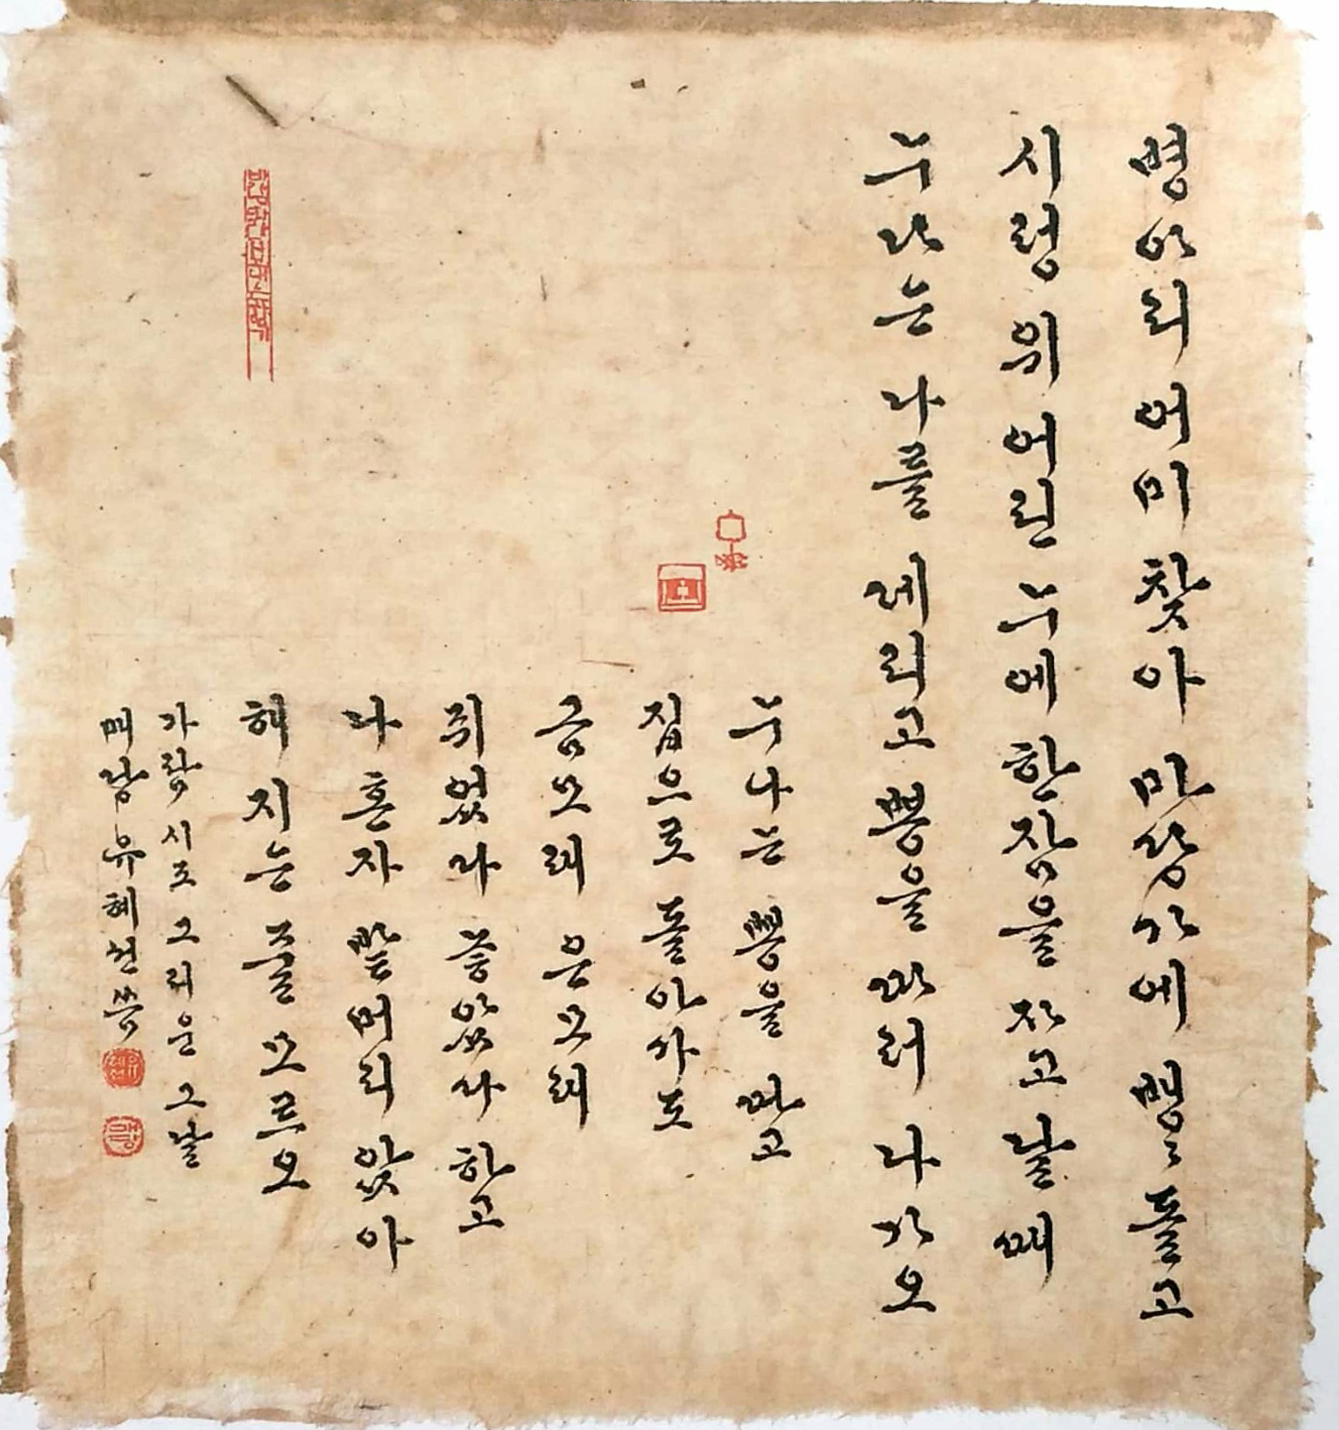 병아리 어미 찾아 마당가에 뱅〻 돌고
시렁 위 어린 누에 한잠을 자고 날 때
누나는 나를 데리고 뽕을 따러 나가오
누나는 뽕을 따고
집으로 돌아가도
금모래 은모래
쥐었다 놓았다 하고
나 혼자 밭머리 앉아
해 지는 줄 모르오
가람 시조 그리운 그날
매당 유혜선 씀